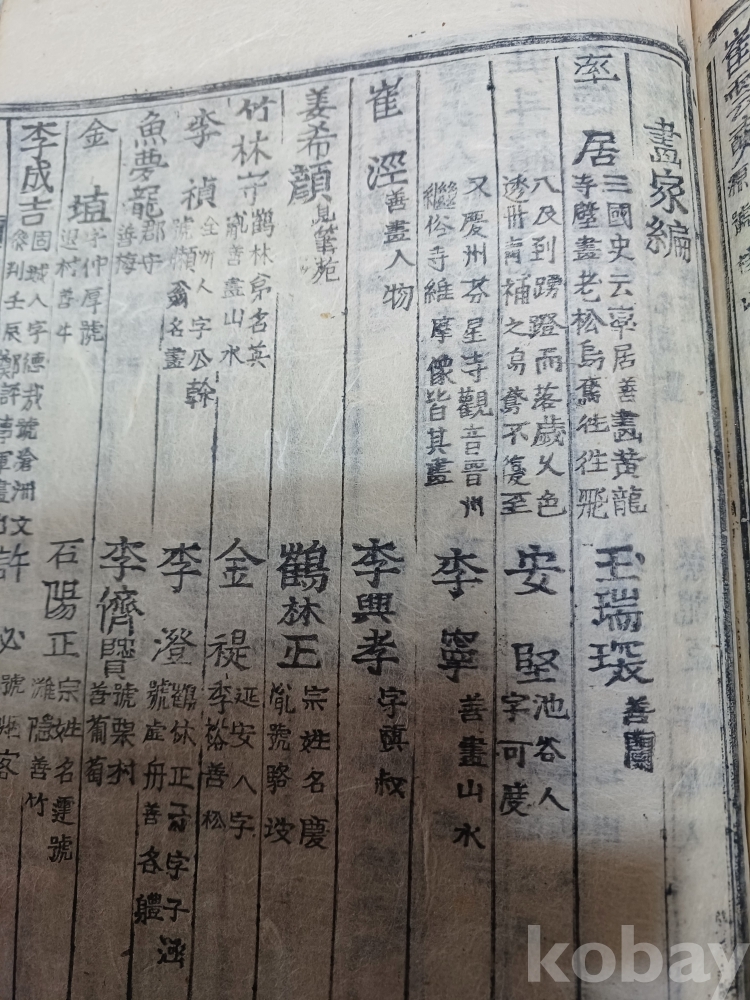 畫家編
率居 三國史云率居善畫黃龍
寺壁畫老松烏鳶往往飛
入及到蹭蹬而落歲久色
又慶州芬皇寺觀音晋州
繼俗寺維摩像皆其畫
玉瑞琁 善蘭
安堅 池谷人
字可度
李寧 善畫山水
崔涇 善畫人物
李興孝 字頥叔
姜希顔 見筆苑
鶴林正 宗姓名慶
胤號駱坡
竹林守 鶴林弟名英
胤善畫山水
金禔 延安人字
季裕善松
李禎 全州人字公幹
號懶翁名畫
李澄 鶴林正子字子涵
號虛舟善各軆
魚夢龍 郡守
善梅
李儕賢 號栗村
善葡萄
金埴 字仲厚號
退村善牛
石陽正 宗姓名霆號
灘隱善竹
李成吉 固城人字德哉號滄洲文
許必 號烟客
kobay